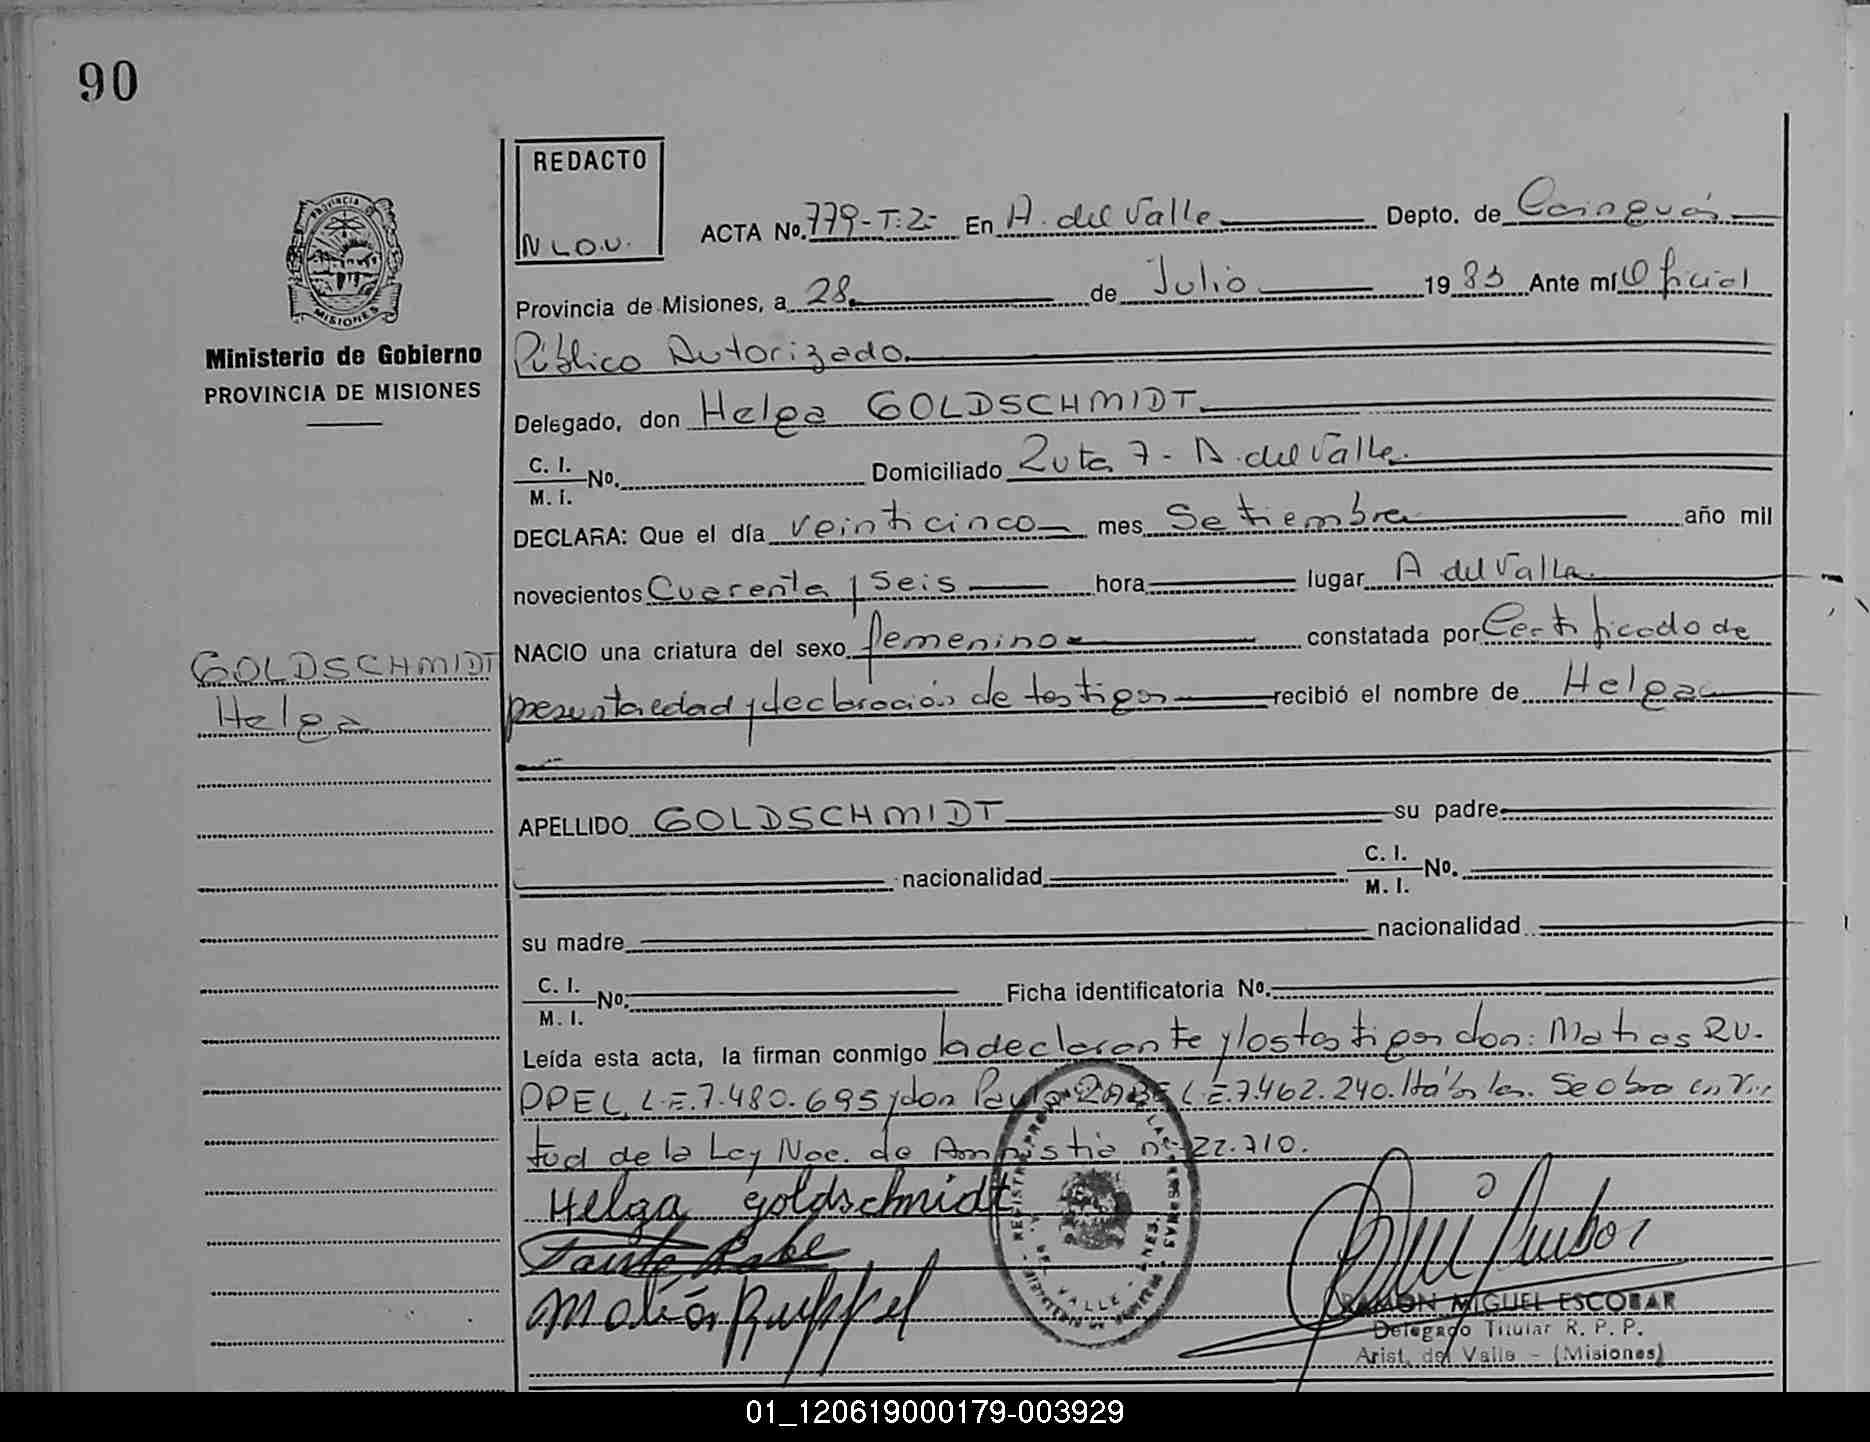 90
REDACTO
N L.O.V.
PROVINCIA DE
MISIONES
Ministerio de Gobierno
PROVINCIA DE MISIONES
ACTA No. 779-T:2- En A. del Valle Depto. de Cainguás
Provincia de Misiones, a 28 de Julio 1983 Ante mí Oficial
Público Autorizado
Delegado, don Helga GOLDSCHMIDT
C. I. M. I. No. Domiciliado Ruta 7 - A. del Valle.
DECLARA: Que el día veinticinco mes Setiembre año mil
novecientos Cuarenta y Seis hora lugar A del Valle.
NACIO una criatura del sexo femenino constatada por Certificado de
GOLDSCHMIDT
Helga
presunta edad y declaración de testigos recibió el nombre de Helga
APELLIDO GOLDSCHMIDT su padre
nacionalidad C. I. M. I. No.
su madre nacionalidad
C. I. M. I. No. Ficha identificatoria No.
Leída esta acta, la firman conmigo la declarante y los testigos don: Matias RU-
PPEL L.E. 7.480.695 y don RABE L.E. 7.462.240. Hábiles. Se obra en vir-
tud de la Ley Nac. de Amnistia nº 22.710.
Helga Goldschmidt
Rabe
Matías Ruppel
VALLE
RAMON MIGUEL ESCOBAR
Delegado Titular R. P. P.
Arist. del Valle - (Misiones)
01_120619000179-003929